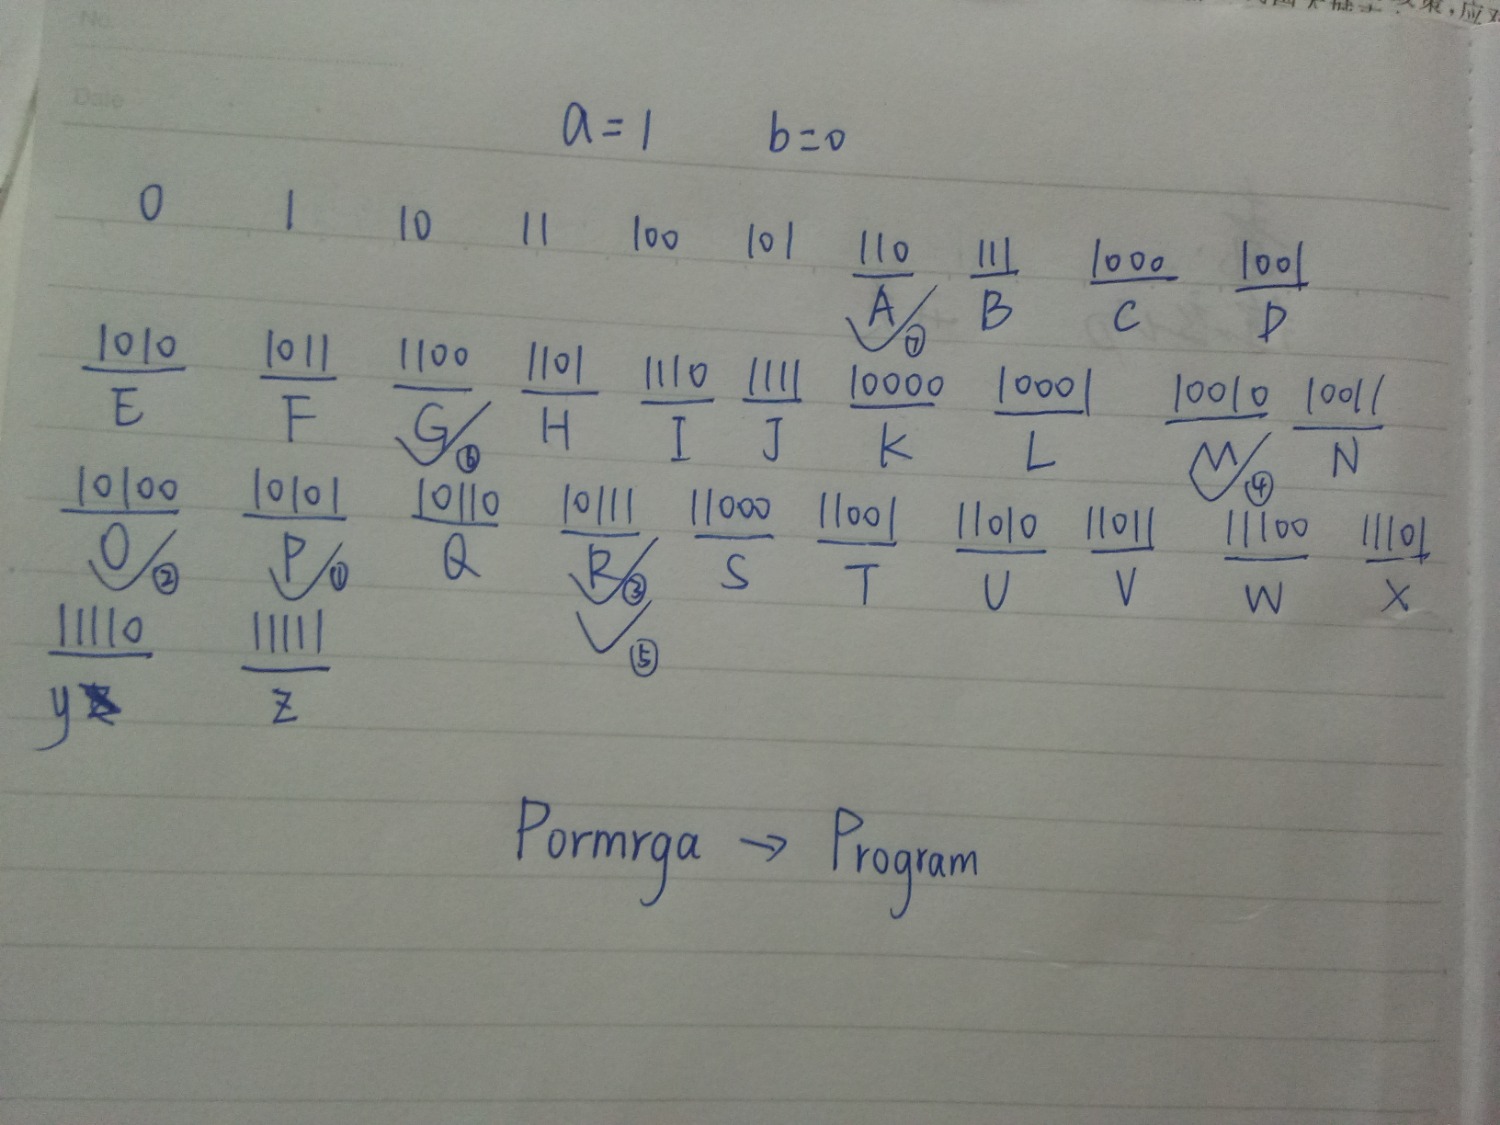 No.
Date
a=1 b=0
0 1 10 11 100 101 110 111 1000 1001
A ⑦ B C D
1010 1011 1100 1101 1110 1111 10000 10001 10010 10011
E F G ⑥ H I J K L M ④ N
10100 10101 10110 10111 11000 11001 11010 11011 11100 11101
O ② P ① Q R ③ S T U V W X
⑤
11110 11111
y z
Pormrga → Program